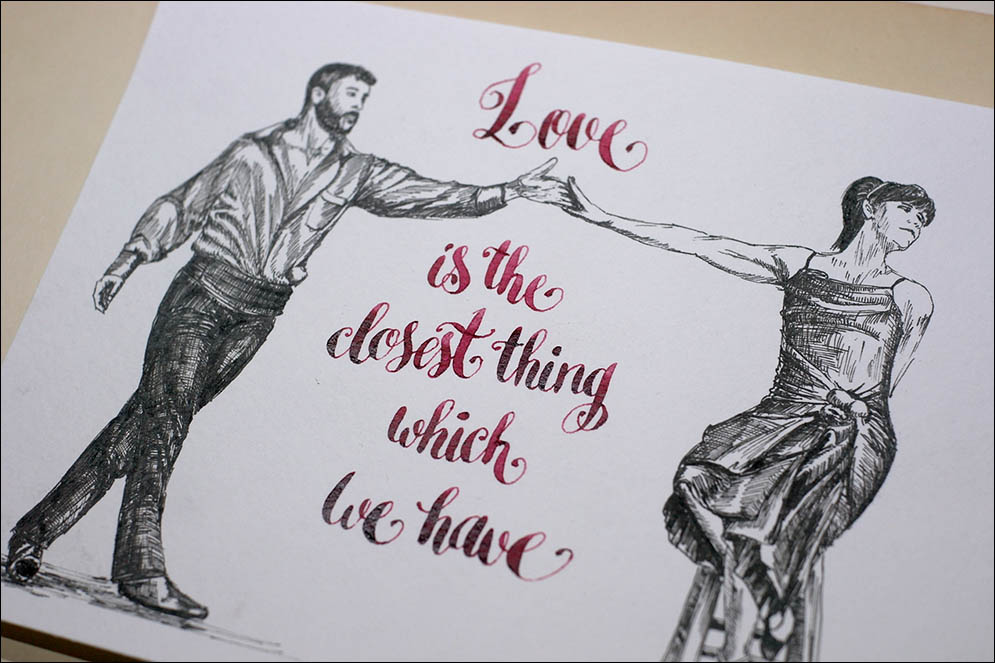 Love
is the
closest thing
which
we have